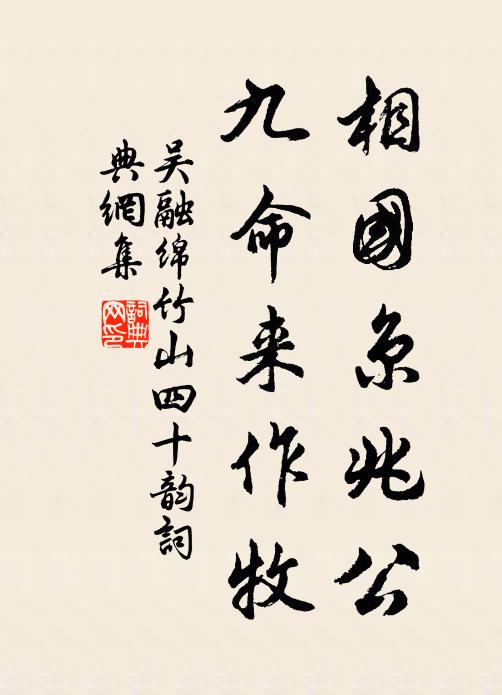 相國京兆公
九命来作牧
吴融绵竹山四十韵詞
典網集
詞典
网印